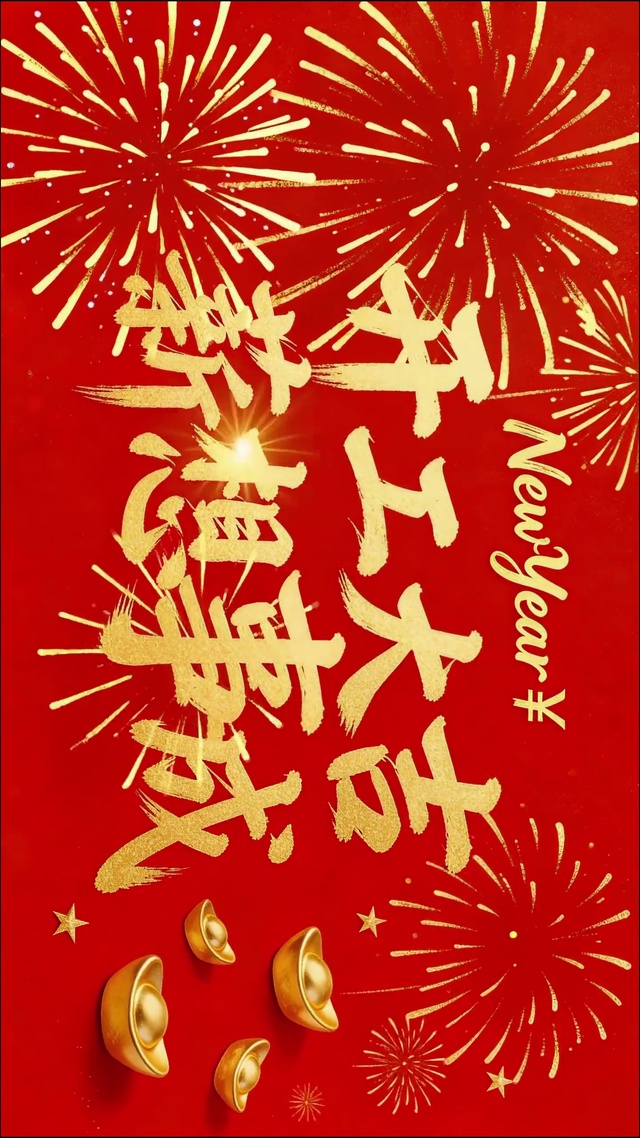 New Year ¥
开工大吉
薪想事成